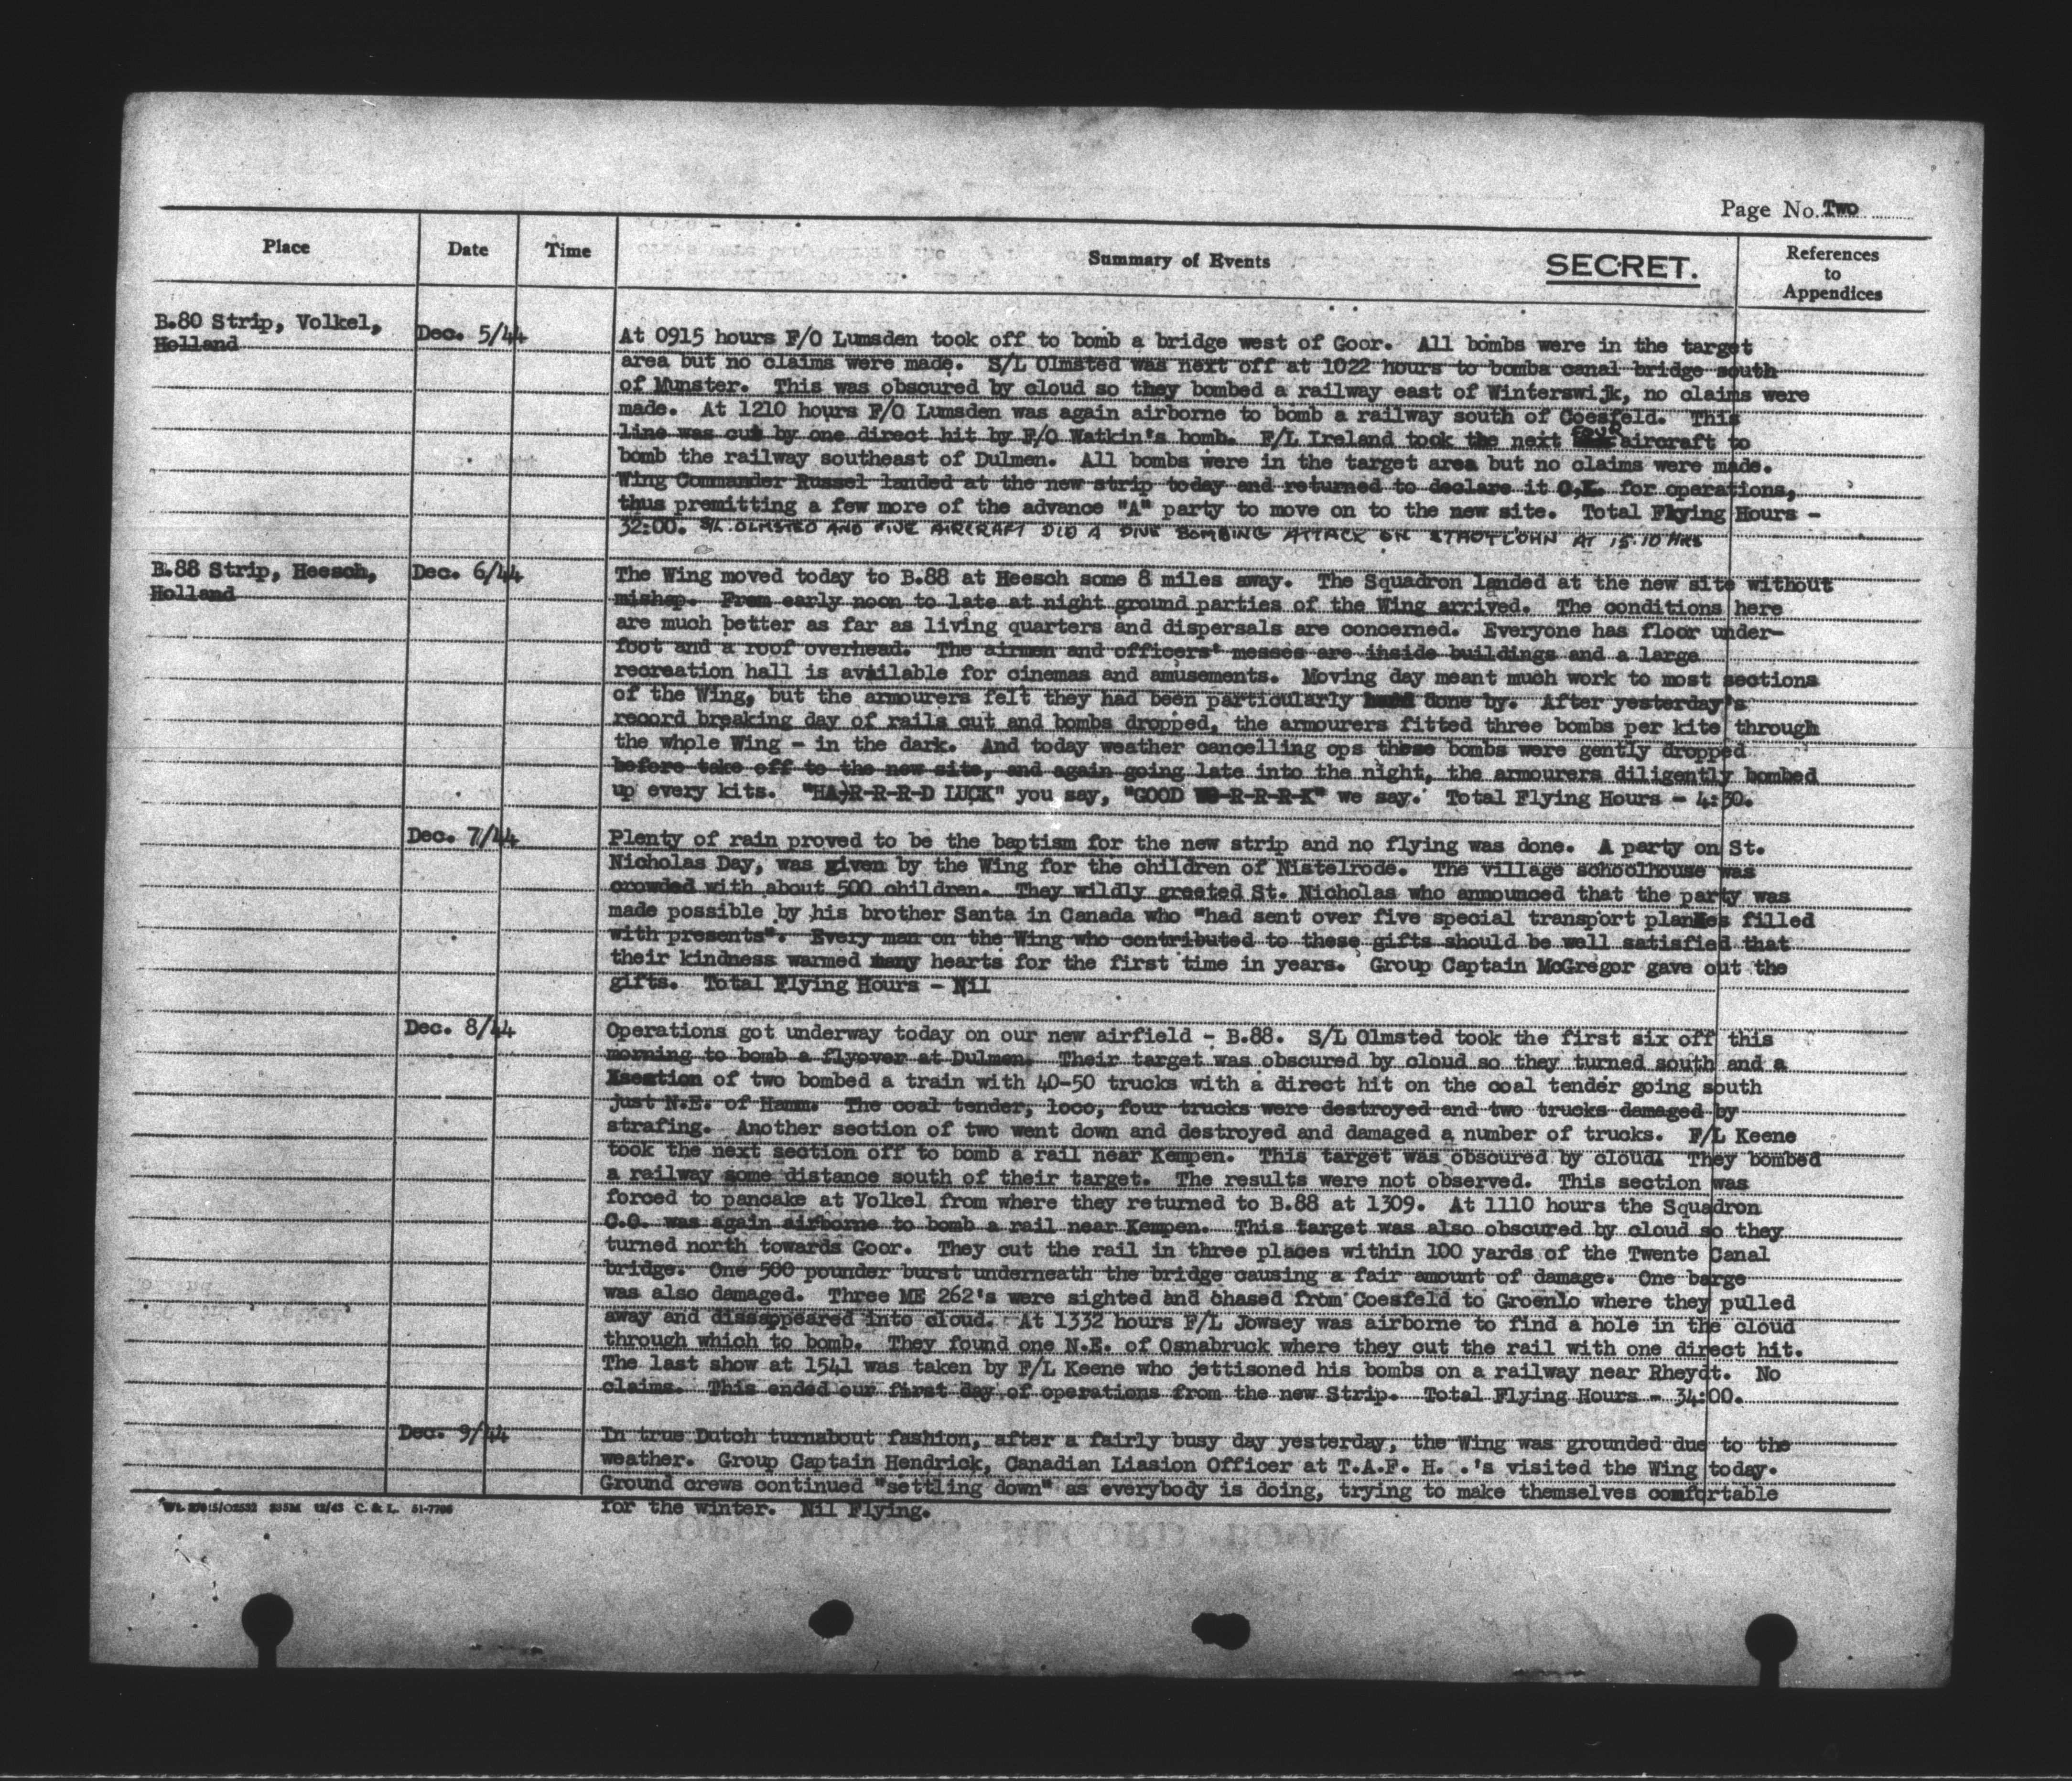 Page No. Two
Place
Date
Time
Summary of Events
SECRET.
References
to
Appendices
B.80 Strip, Volkel,
Holland
Dec. 5/44
At 0915 hours F/O Lumsden took off to bomb a bridge west of Goor. All bombs were in the target
area but no claims were made. S/L Olmsted was next off at 1022 hours to bomba canal bridge south
of Munster. This was obscured by cloud so they bombed a railway east of Winterswijk, no claims were
made. At 1210 hours F/O Lumsden was again airborne to bomb a railway south of Coesfeld. This
line was cut by one direct hit by F/O Watkin's bomb. F/L Ireland took the next four aircraft to
bomb the railway southeast of Dulmen. All bombs were in the target area but no claims were made.
Wing Commander Russel landed at the new strip today and returned to declare it O.K. for operations,
thus premitting a few more of the advance "A" party to move on to the new site. Total Flying Hours -
32:00. S/L OLMSTED AND FIVE AIRCRAFT DID A DIVE BOMBING ATTACK ON AT 15.10 HRS
B.88 Strip, Heesch,
Holland
Dec. 6/44
The Wing moved today to B.88 at Heesch some 8 miles away. The Squadron landed at the new site without
mishap. From early noon to late at night ground parties of the Wing arrived. The conditions here
are much better as far as living quarters and dispersals are concerned. Everyone has floor under-
foot and a roof overhead. The airmen and officers' messes are inside buildings and a large
recreation hall is available for cinemas and amusements. Moving day meant much work to most sections
of the Wing, but the armourers felt they had been particularly hard done by. After yesterday's
record breaking day of rails cut and bombs dropped, the armourers fitted three bombs per kite through
the whole Wing - in the dark. And today weather cancelling ops these bombs were gently dropped
before take off to the new site, and again going late into the night, the armourers diligently bombed
up every kits. "HA)R-R-R-D LUCK" you say, "GOOD WO-R-R-R-K" we say. Total Flying Hours - 4:30.
Dec. 7/44
Plenty of rain proved to be the baptism for the new strip and no flying was done. A party on St.
Nicholas Day, was given by the Wing for the children of Nistelrode. The village schoolhouse was
crowded with about 500 children. They wildly greeted St. Nicholas who announced that the party was
made possible by his brother Santa in Canada who "had sent over five special transport planes filled
with presents". Every man on the Wing who contributed to these gifts should be well satisfied that
their kindness warmed many hearts for the first time in years. Group Captain McGregor gave out the
gifts. Total Flying Hours - Nil
Dec. 8/44
Operations got underway today on our new airfield - B.88. S/L Olmsted took the first six off this
morning to bomb a flyover at Dulmen. Their target was obscured by cloud so they turned south and a
section of two bombed a train with 40-50 trucks with a direct hit on the coal tender going south
just N.E. of Hamm. The coal tender, loco, four trucks were destroyed and two trucks damaged by
strafing. Another section of two went down and destroyed and damaged a number of trucks. F/L Keene
took the next section off to bomb a rail near Kempen. This target was obscured by cloud. They bombed
a railway some distance south of their target. The results were not observed. This section was
forced to pancake at Volkel from where they returned to B.88 at 1309. At 1110 hours the Squadron
C.O. was again airborne to bomb a rail near Kempen. This target was also obscured by cloud so they
turned north towards Goor. They cut the rail in three places within 100 yards of the Twente Canal
bridge. One 500 pounder burst underneath the bridge causing a fair amount of damage. One barge
was also damaged. Three ME 262's were sighted and chased from Coesfeld to Groenlo where they pulled
away and dissappeared into cloud. At 1332 hours F/L Jowsey was airborne to find a hole in the cloud
through which to bomb. They found one N.E. of Osnabruck where they cut the rail with one direct hit.
The last show at 1541 was taken by F/L Keene who jettisoned his bombs on a railway near Rheydt. No
claims. This ended our first day of operations from the new Strip. Total Flying Hours - 34:00.
Dec. 9/44
In true Dutch turnabout fashion, after a fairly busy day yesterday, the Wing was grounded due to the
weather. Group Captain Hendrick, Canadian Liasion Officer at T.A.F. H. .'s visited the Wing today.
Ground crews continued "settling down" as everybody is doing, trying to make themselves comfortable
for the winter. Nil Flying.
12/43 C. & L. 51-7706